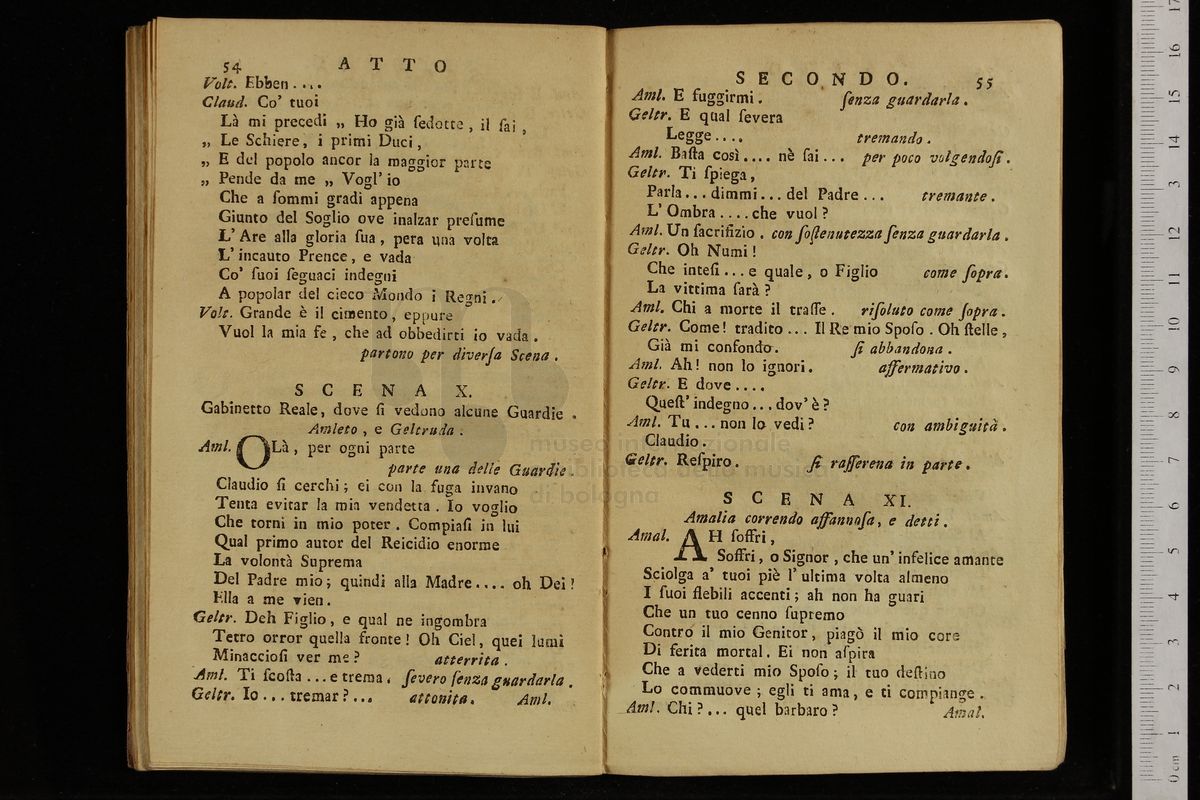 54 A T T O
Volt. Ebben . . . .
Claud. Co' tuoi
Là mi precedi „ Ho già ſedotte , il ſai ,
„ Le Schiere, i primi Duci ,
„ E del popolo ancor la maggior parte
„ Pende da me „ Vogl' io
Che a ſommi gradi appena
Giunto del Soglio ove inalzar preſume
L' Are alla gloria ſua , pera una volta
L' incauto Prence, e vada
Co' ſuoi ſeguaci indegni
A popolar del cieco Mondo i Regni .
Volt. Grande è il cimento , eppure
Vuol la mia fe , che ad obbedirti io vada .
partono per diverſa Scena .
S C E N A X.
Gabinetto Reale, dove ſi vedono alcune Guardie .
Amleto , e Geltruda .
Aml. OLà , per ogni parte
parte una delle Guardie .
Claudio ſi cerchi ; ei con la fuga invano
Tenta evitar la mia vendetta . Io voglio
Che torni in mio poter . Compiaſi in lui
Qual primo autor del Reicidio enorme
La volontà Suprema
Del Padre mio ; quindi alla Madre . . . . oh Dei !
Ella a me vien .
Geltr. Deh Figlio , e qual ne ingombra
Tetro orror quella fronte ! Oh Ciel , quei lumi
Minaccioſi ver me ? atterrita .
Aml. Ti ſcoſta . . . e trema . ſevero ſenza guardarla .
Geltr. Io . . . tremar ? . . . attonita . Aml.
S E C O N D O . 55
Aml. E fuggirmi . ſenza guardarla .
Geltr. E qual ſevera
Legge . . . . tremando .
Aml. Baſta così . . . . nè ſai . . . per poco volgendoſi .
Geltr. Ti ſpiega ,
Parla . . . dimmi . . . del Padre . . . tremante .
L' Ombra . . . . che vuol ?
Aml. Un ſacrifizio . con ſoſtenutezza ſenza guardarla .
Geltr. Oh Numi !
Che inteſi . . . e quale , o Figlio come ſopra .
La vittima ſarà ?
Aml. Chi a morte il traſſe . riſoluto come ſopra .
Geltr. Come ! tradito . . . Il Re mio Spoſo . Oh ſtelle ,
Già mi confondo . ſi abbandona .
Aml. Ah ! non lo ignori . affermativo .
Geltr. E dove . . . .
Queſt' indegno . . . dov' è ?
Aml. Tu . . . non lo vedi ? con ambiguità .
Claudio .
Geltr. Reſpiro . ſi rafferena in parte .
S C E N A XI.
Amalia correndo affannoſa , e detti .
Amal. AH ſoffri ,
Soffri , o Signor , che un' infelice amante
Sciolga a' tuoi piè l' ultima volta almeno
I ſuoi flebili accenti ; ah non ha guari
Che un tuo cenno ſupremo
Contro il mio Genitor , piagò il mio core
Di ferita mortal . Ei non aſpira
Che a vederti mio Spoſo ; il tuo deſtino
Lo commuove ; egli ti ama , e ti compiange .
Aml. Chi ? . . . quel barbaro ? Amal.
museo internazionale
e biblioteca della musica
di bologna
0 cm 1 2 3 4 5 6 7 8 9 10 11 12 13 14 15 16 17